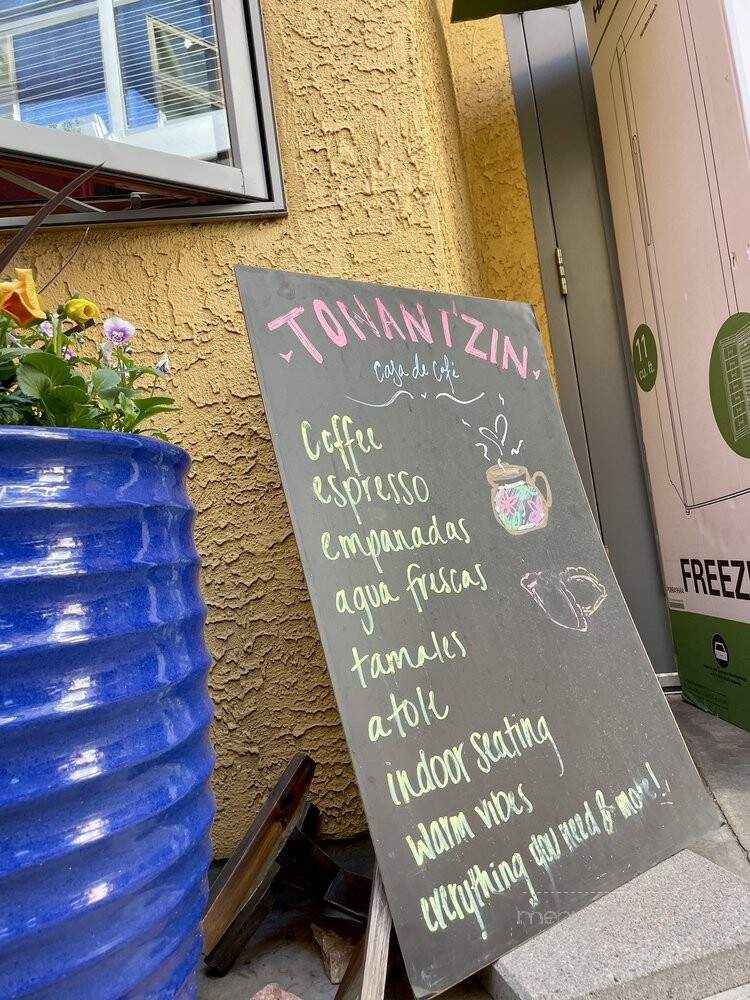 TONANTZIN
Casa de Café
Coffee
espresso
empanadas
agua frescas
tamales
atole
indoor seating
warm vibes
everything you need & more!
11
cu. ft.
FREEZE